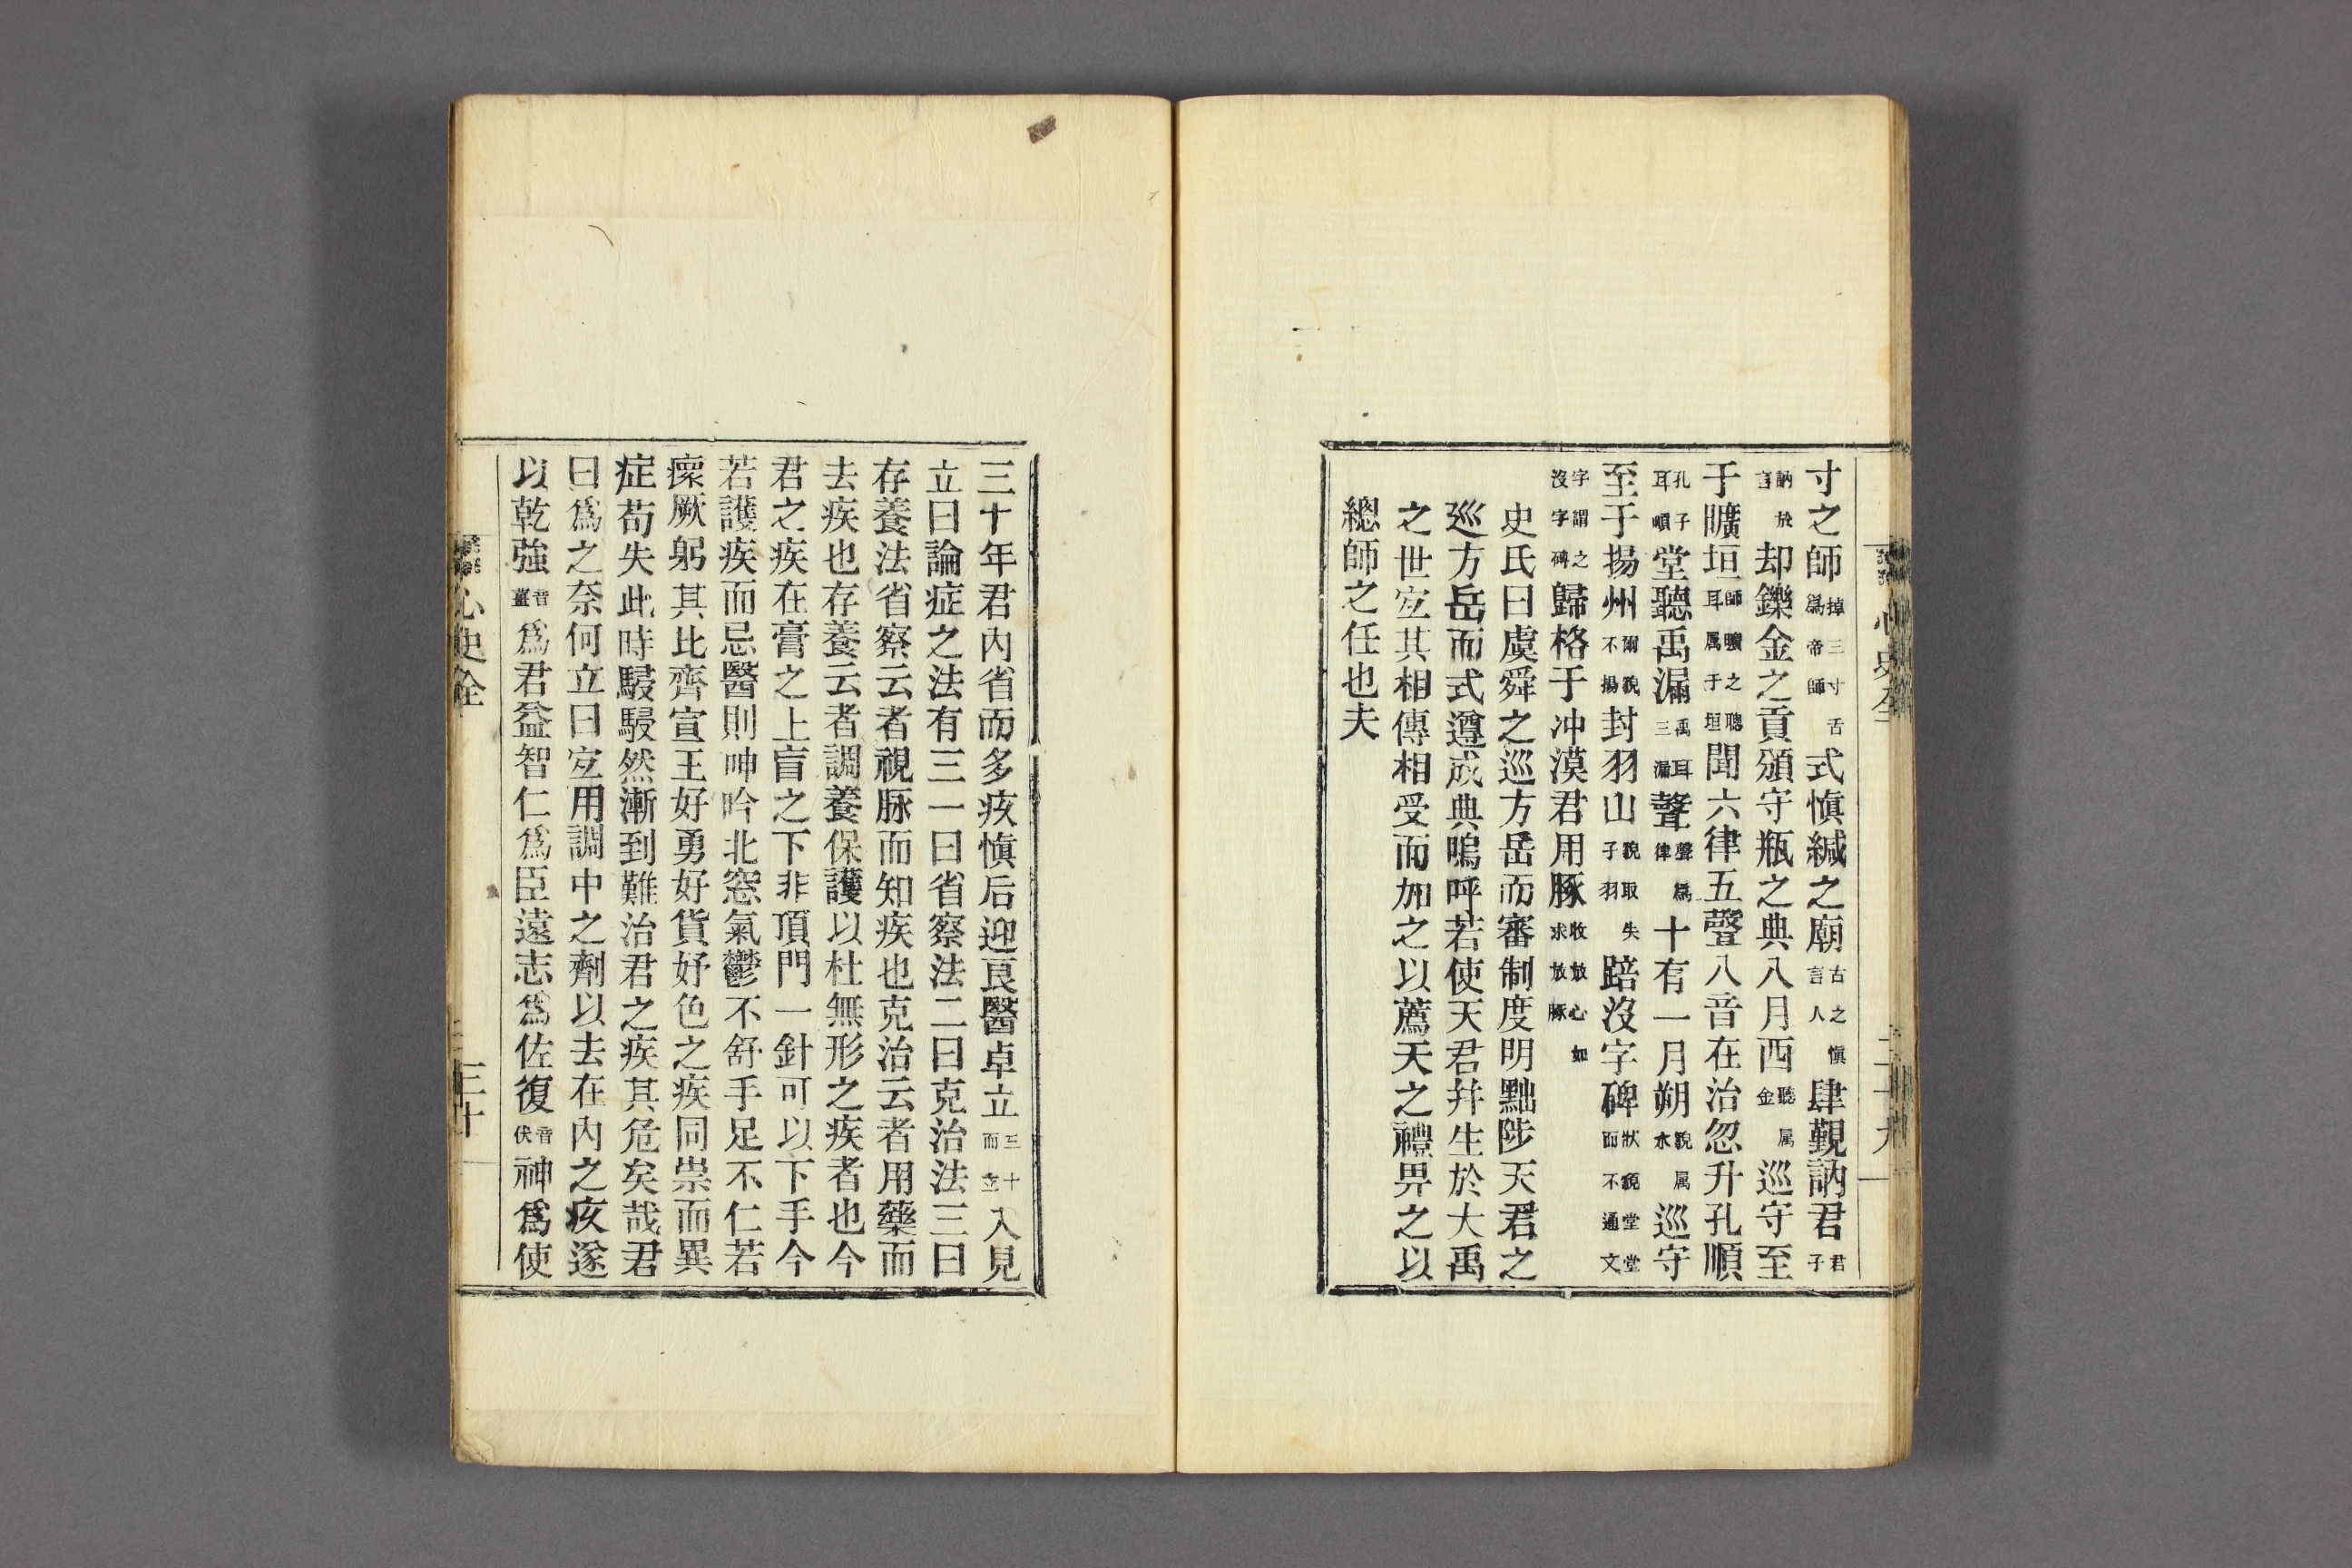 寸之師掉三寸舌爲帝師式愼緘之廟古之愼言人肆覲訥君君子
訥於言却鑠金之貢頒守瓶之典八月西聽属金巡守至
于曠垣師曠之聰耳属于垣聞六律五聲八音在治忽升孔順
孔子耳順堂聽禹漏禹耳三漏聲聲爲律十有一月朔貌属水巡守
至于揚州爾貌不揚封羽山貌取失子羽踣沒字碑狀貌堂堂而不通文
字謂之沒字碑歸格于冲漠君用豚收放心如求放豚
史氏曰虞舜之巡方岳而審制度明黜陟天君之
巡方岳而式遵成典嗚呼若使天君幷生於大禹
之世宐其相傳相受而加之以薦天之禮畀之以
總師之任也夫
三十年君內省而多疚愼后迎良醫卓立三十而立入見
立曰論症之法有三一曰省察法二曰克治法三曰
存養法省察云者視脉而知疾也克治云者用藥而
去疾也存養云者調養保護以杜無形之疾者也今
君之疾在膏之上盲之下非頂門一針可以下手今
若護疾而忌醫則呻吟北窓氣鬱不舒手足不仁若
瘝厥躬其比齊宣王好勇好貨好色之疾同祟而異
症苟失此時駸駸然漸到難治君之疾其危矣哉君
曰爲之奈何立曰宐用調中之劑以去在內之疚遂
以乾強音薑爲君益智仁爲臣遠志爲佐復音伏神爲使
心史全
三十